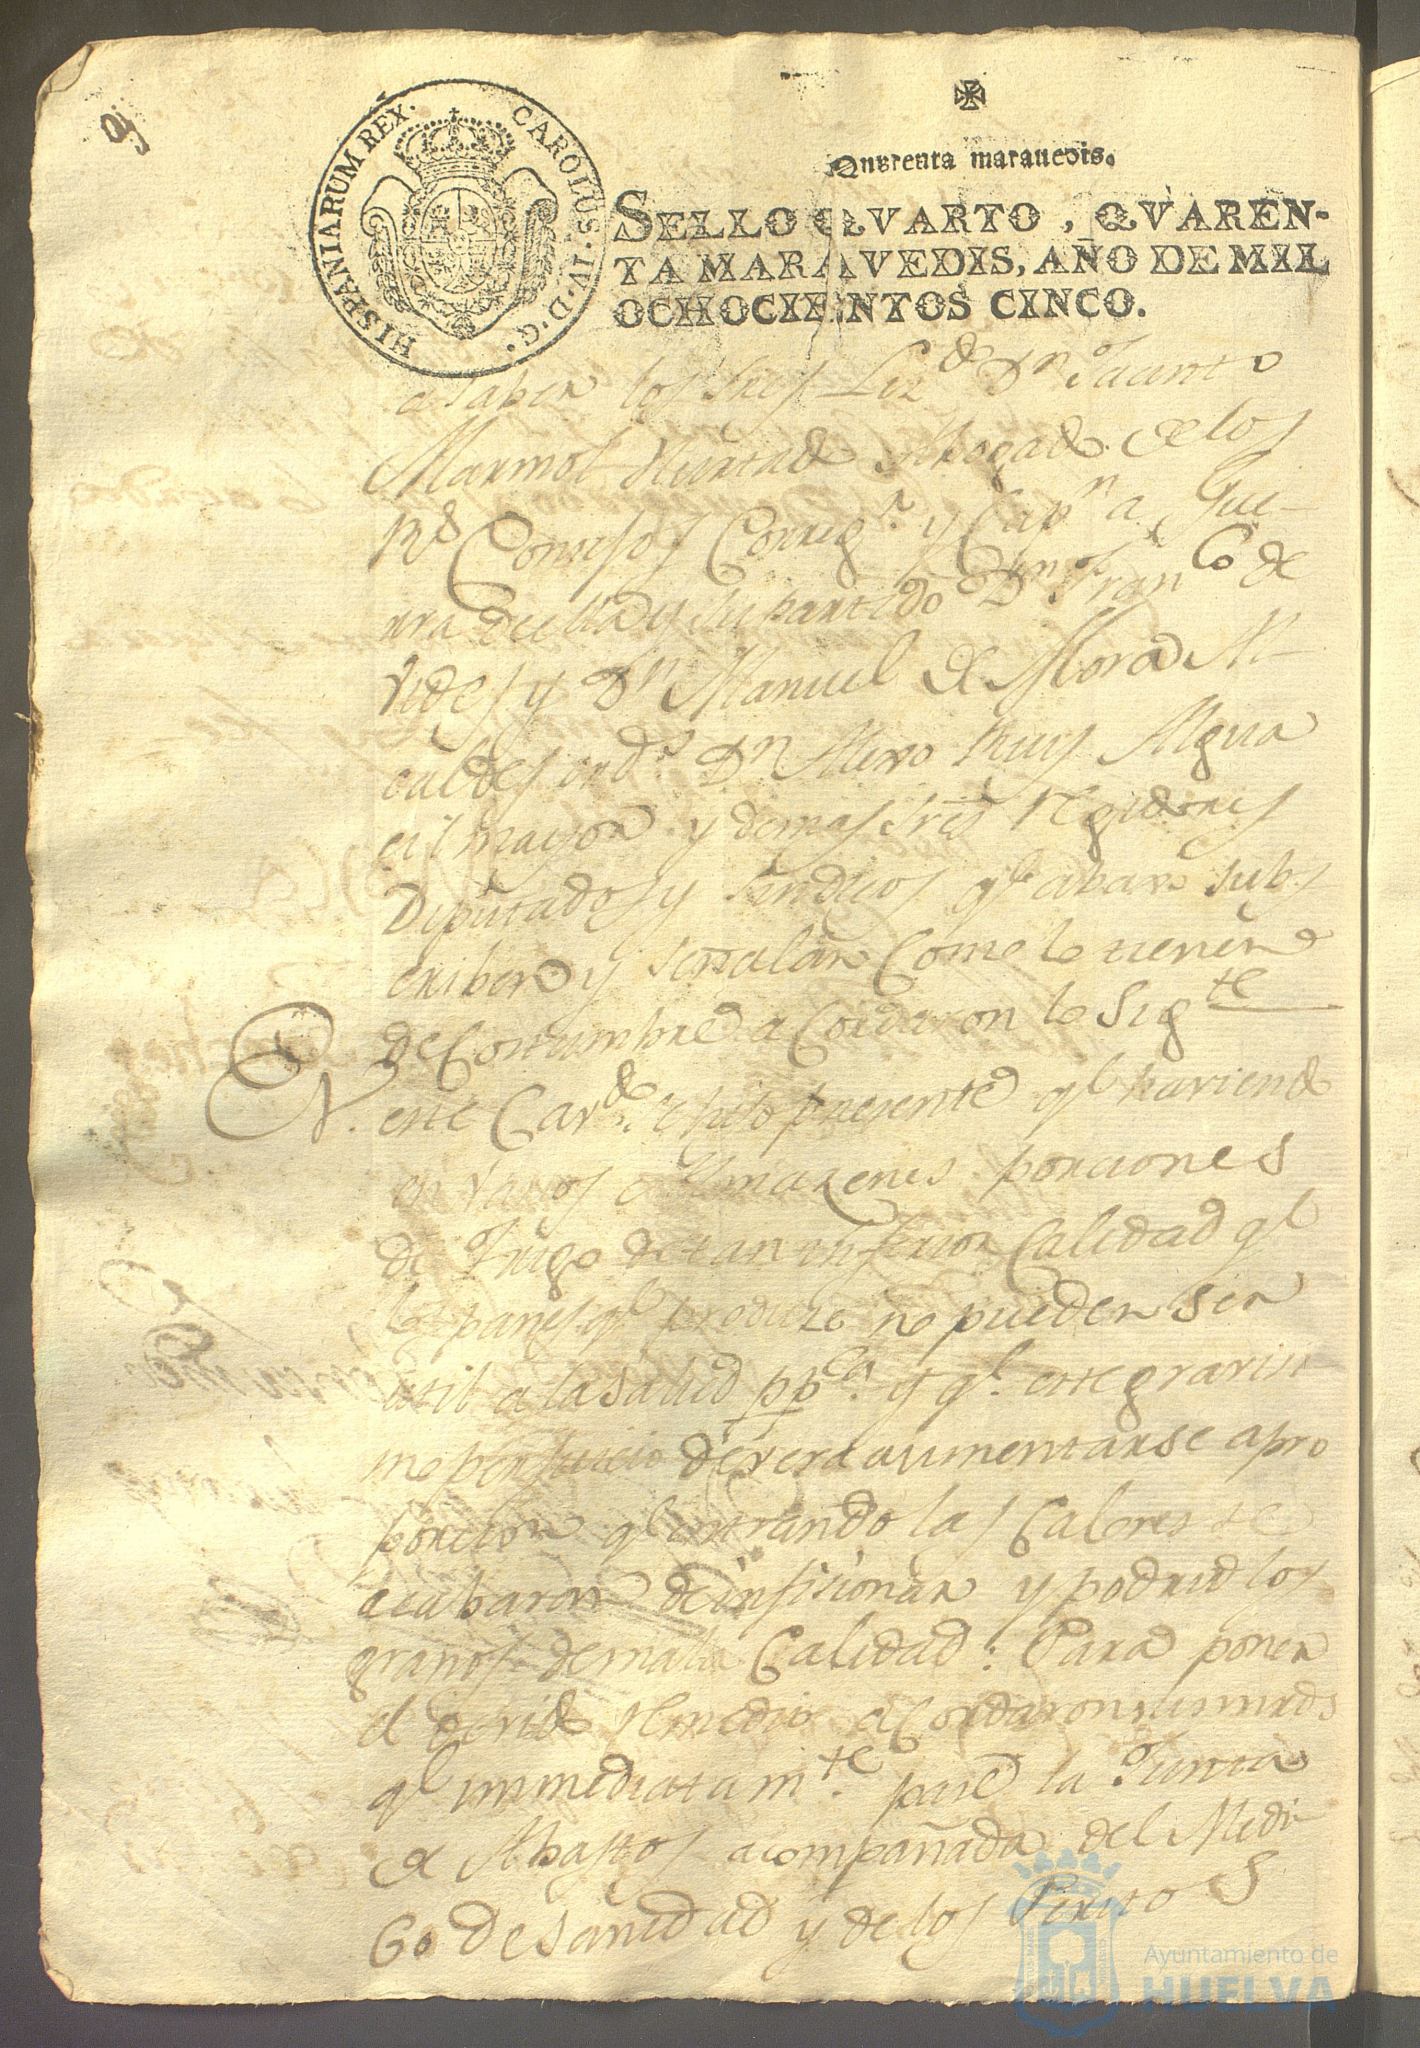 Quarenta maravedis.
HISPANIARUM REX. CAROLUS. IV. D. G.
SELLO QVARTO, QVAREN-
TA MARAVEDIS, AÑO DE MIL
OCHOCIENTOS CINCO.
a saber los Sres Lizdo Dn Jacinto
Marmol Hurtado Abogado de los
Rs Consejos Corregr. y Capn a Gue-
rra de ella y su partido Dn Franco de
y Dn Manuel de Mora Al-
caldes ords Dn Alexo Ruis Algua
cil mayor y demas Sres Regidores
Diputados y Sindicos qe abaxo subs
criben y señalan Como lo tienen
de Costumbre acordaron lo Sigte
En este Cavdo. se hizo presente qe haviendo
en varios Almazenes porciones
de Trigo de tan inferior Calidad qe
los panes qe produze no pueden ser
util a la salud ppca. y qe. este gravisi
mo perjuicio devera aumentarse a pro
porcion qe entrando las Calores se
acabaran de infisionar y podrid los
granos de mala Calidad: Para poner
el devido Remedio acordaron sus mrds
qe immediatamte. pase la Junta
de Abastos acompañada del Medi
co de sanidad y de los Peritos
Ayuntamiento de
HUELVA